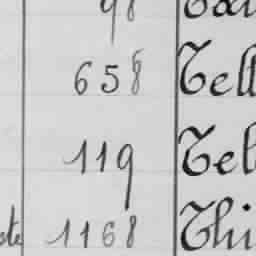 98
658 Tell
119 Tel
ste 1168 Thi